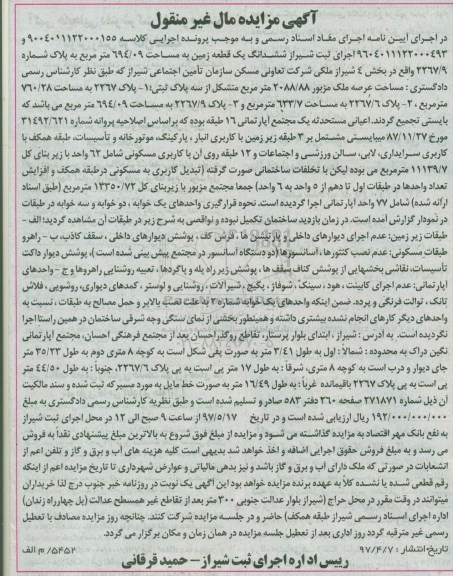 آگهی مزایده مال غیر منقول
در اجرای آیین نامه اجرای مفاد اسناد رسمی و به موجب پرونده اجرایی کلاسه ۹۰۰۴۰۱۱۱۲۲۰۰۰۱۵۵ و
۹۶۰۴۰۰۱۱۱۲۲۰۰۰۴۹۳ اجرای ثبت شیراز ششدانگ یک قطعه زمین به مساحت ۶۹۴/۰۹ متر مربع به پلاک شماره
۲۲۶۷/۹ واقع در بخش ۴ شیراز ملکی شرکت تعاونی مسکن سازمان تأمین اجتماعی شیراز که طبق نظر کارشناس رسمی
دادگستری : مساحت عرصه ملک مزبور ۲۰۸۸/۸۸ متر مربع متشکل از سه پلاک ثبتی؛ ۱- پلاک ۲۲۶۷ به مساحت ۷۶۰/۲۸
مترمربع ، ۲- پلاک ۲۲۶۷/۶ به مساحت ۶۳۳/۷ مترمربع و ۳- پلاک ۲۲۶۷/۹ به مساحت ۶۹۴/۰۹ متر مربع می باشد که
بایستی تجمیع گردند. اعیانی مستحدثه یک مجتمع آپارتمانی ۱۶ طبقه بوده که براساس اصلاحیه پروانه شماره ۳۱۴۹۲/۶۲۱
مورخ ۸۷/۱۱/۲۷ میبایستی مشتمل بر ۳ طبقه زیر زمین با کاربری انبار ، پارکینگ، موتورخانه و تأسیسات، طبقه همکف با
کاربری سرایداری، لابی، سالن ورزشی و اجتماعات و ۱۲ طبقه روی آن با کاربری مسکونی شامل ۶۲ واحد با زیر بنای کل
۱۱۱۳۹/۷ مترمربع می بوده لیکن با تخلفات ساختمانی صورت گرفته (تبدیل کاربری به مسکونی درطبقه همکف و افزایش
تعداد واحدها در طبقات اول تا دهم از ۵ واحد به ۶ واحد) جمعا مجتمع مزبور با زیربنای کل ۱۳۳۵۰/۷۲ مترمربع (طبق اسناد
ارائه شده) شامل ۷۷ واحد آپارتمانی اجرا گردیده است. نحوه قرارگیری واحدهای یک خوابه ، دو خوابه و سه خوابه در طبقات
در نمودار گزارش آمده است. در زمان بازدید ساختمان تکمیل نبوده و نواقصی به شرح زیر در طبقات آن مشاهده گردید؛ الف -
طبقات زیر زمین: عدم اجرای دیوارهای داخلی و پارتیشن ها ، فرش کف ، پوشش دیوارهای داخلی ، سقف کاذب، ب - راهرو
طبقات مسکونی: عدم نصب کنتورها، آسانسورها (دو دستگاه آسانسور در مجتمع پیش بینی شده است)، پوشش دیوار داکت
تأسیسات، نقاشی بخشهایی از پوشش کناف سقف ها ، پوشش زیر راه پله و پاگردها ، تعبیه روشنایی راهروها و ج - واحدهای
آپارتمانی: عدم اجرای کابینت ، هود ، سینک، شوفاژ، پکیج ، شیرآلات ، روشنایی و لوستر ، کمدهای دیواری، روشویی ، فلاش
تانک ، توالت فرنگی و پرده. ضمن اینکه واحدهای یک خوابه شماره ۳ به علت نصب بالابر و حمل مصالح به طبقات ، نسبت به
واحدهای دیگر کارهای انجام نشده بیشتری داشته و همینطور بخشی از نمای سنگی وجه شرقی ساختمان در همین راستا اجرا
نگردیده است. به آدرس : شیراز ، ابتدای بلوار پرستار، تقاطع روگذر احسان بعد از مجتمع فرهنگی احسان، مجتمع آپارتمانی
نگین دراک به محدوده : شمالاً : اول به طول ۳/۴۱ متر به صورت پخی شکل است به کوچه ۸ متری دوم به طول ۳۵/۲۳ متر
جای دیوار و درب است به کوچه ۸ متری، شرقاً : به طول ۱۷ متر پی است به پی پلاک ۲۲۶۷/۶، جنوباً : به طول ۴۴/۵۰ متر
پی است به پی پلاک ۲۲۶۷ باقیمانده غرباً : به طول ۱۶/۴۹ متر به صورت خط مایل به مورد مسیر که ثبت شده و سند مالکیت
آن ذیل ثبت ۲۷۱۸۷۱ صفحه ۳۶۰ دفتر ۵۸۳ صادر و تسلیم شده است و طبق نظریه کارشناس رسمی دادگستری به مبلغ
۱۹۲/۰۰۰/۰۰۰/۰۰۰ ریال ارزیابی شده است و در تاریخ ۹۷/۵/۱۷ از ساعت ۹ صبح الی ۱۲ در محل اجرای ثبت شیراز
به نفع بانک مهر اقتصاد به مزایده گذاشته می شود و مزایده از مبلغ فوق شروع به بالاترین مبلغ پیشنهادی نقداً به فروش
می رسد و به مبلغ فروش حقوق اجرایی اضافه و اخذ خواهد شد بدیهی است کلیه هزینه های آب و برق و گاز و تلفن اعم از
انشعابات در صورتی که ملک دارای آب و برق و گاز باشد و نیز بدهی مالیاتی و عوارض شهرداری تا تاریخ مزایده اعم از اینکه
رقم قطعی شده یا نشده کلا به عهده برنده مزایده خواهد بود این آگهی یک نوبت در روزنامه خبر جنوب درج لذا خریداران
میتوانند در وقت مقرر در محل حراج (شیراز بلوار عدالت جنوبی ۳۰۰ متر بعد از تقاطع غیر همسطح عدالت (پل چهارراه زندان)
اداره اجرای اسناد رسمی شیراز طبقه همکف) حاضر و در جلسه مزایده شرکت کنند. چنانچه روز مزایده مصادف با تعطیل
رسمی غیر مترقبه گردد روز اداری بعد از تعطیل جلسه مزایده در همان زمان و مکان برگزار می گردد.
تاریخ انتشار : ۹۷/۴/۷ ۵۴۵۲/م الف
رییس اداره اجرای ثبت شیراز – حمید فرقانی